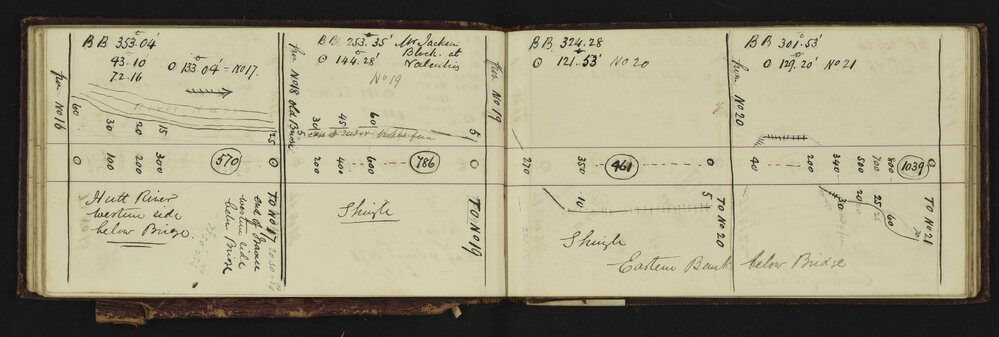 BB 353.04'
43.10
72.16
⊙ 133°04' = No 17.
from No 16
60
30
20
15
25
0
100
200
300
570
0
Hutt River
western side
below Brige.
TO No 17
end of
western side
below Bridge
from No 18 old Bridge
BB 253.35'
⊙ 144.28'
No 19
Mr Jacken
Block. at
Valentins
5
30
45
60
5
20
400
600
786
0
Shingle
TO No 19
from No 19
BB 324.28
⊙ 121.53' No 20
270
350
461
0
10
5
TO No 20
Shingle
Eastern Bank below Bridge
BB 301.53'
⊙ 129.20' No 21
from No 20
40
200
340
500
700
800
1039
0
30
20
25
60
TO No 21